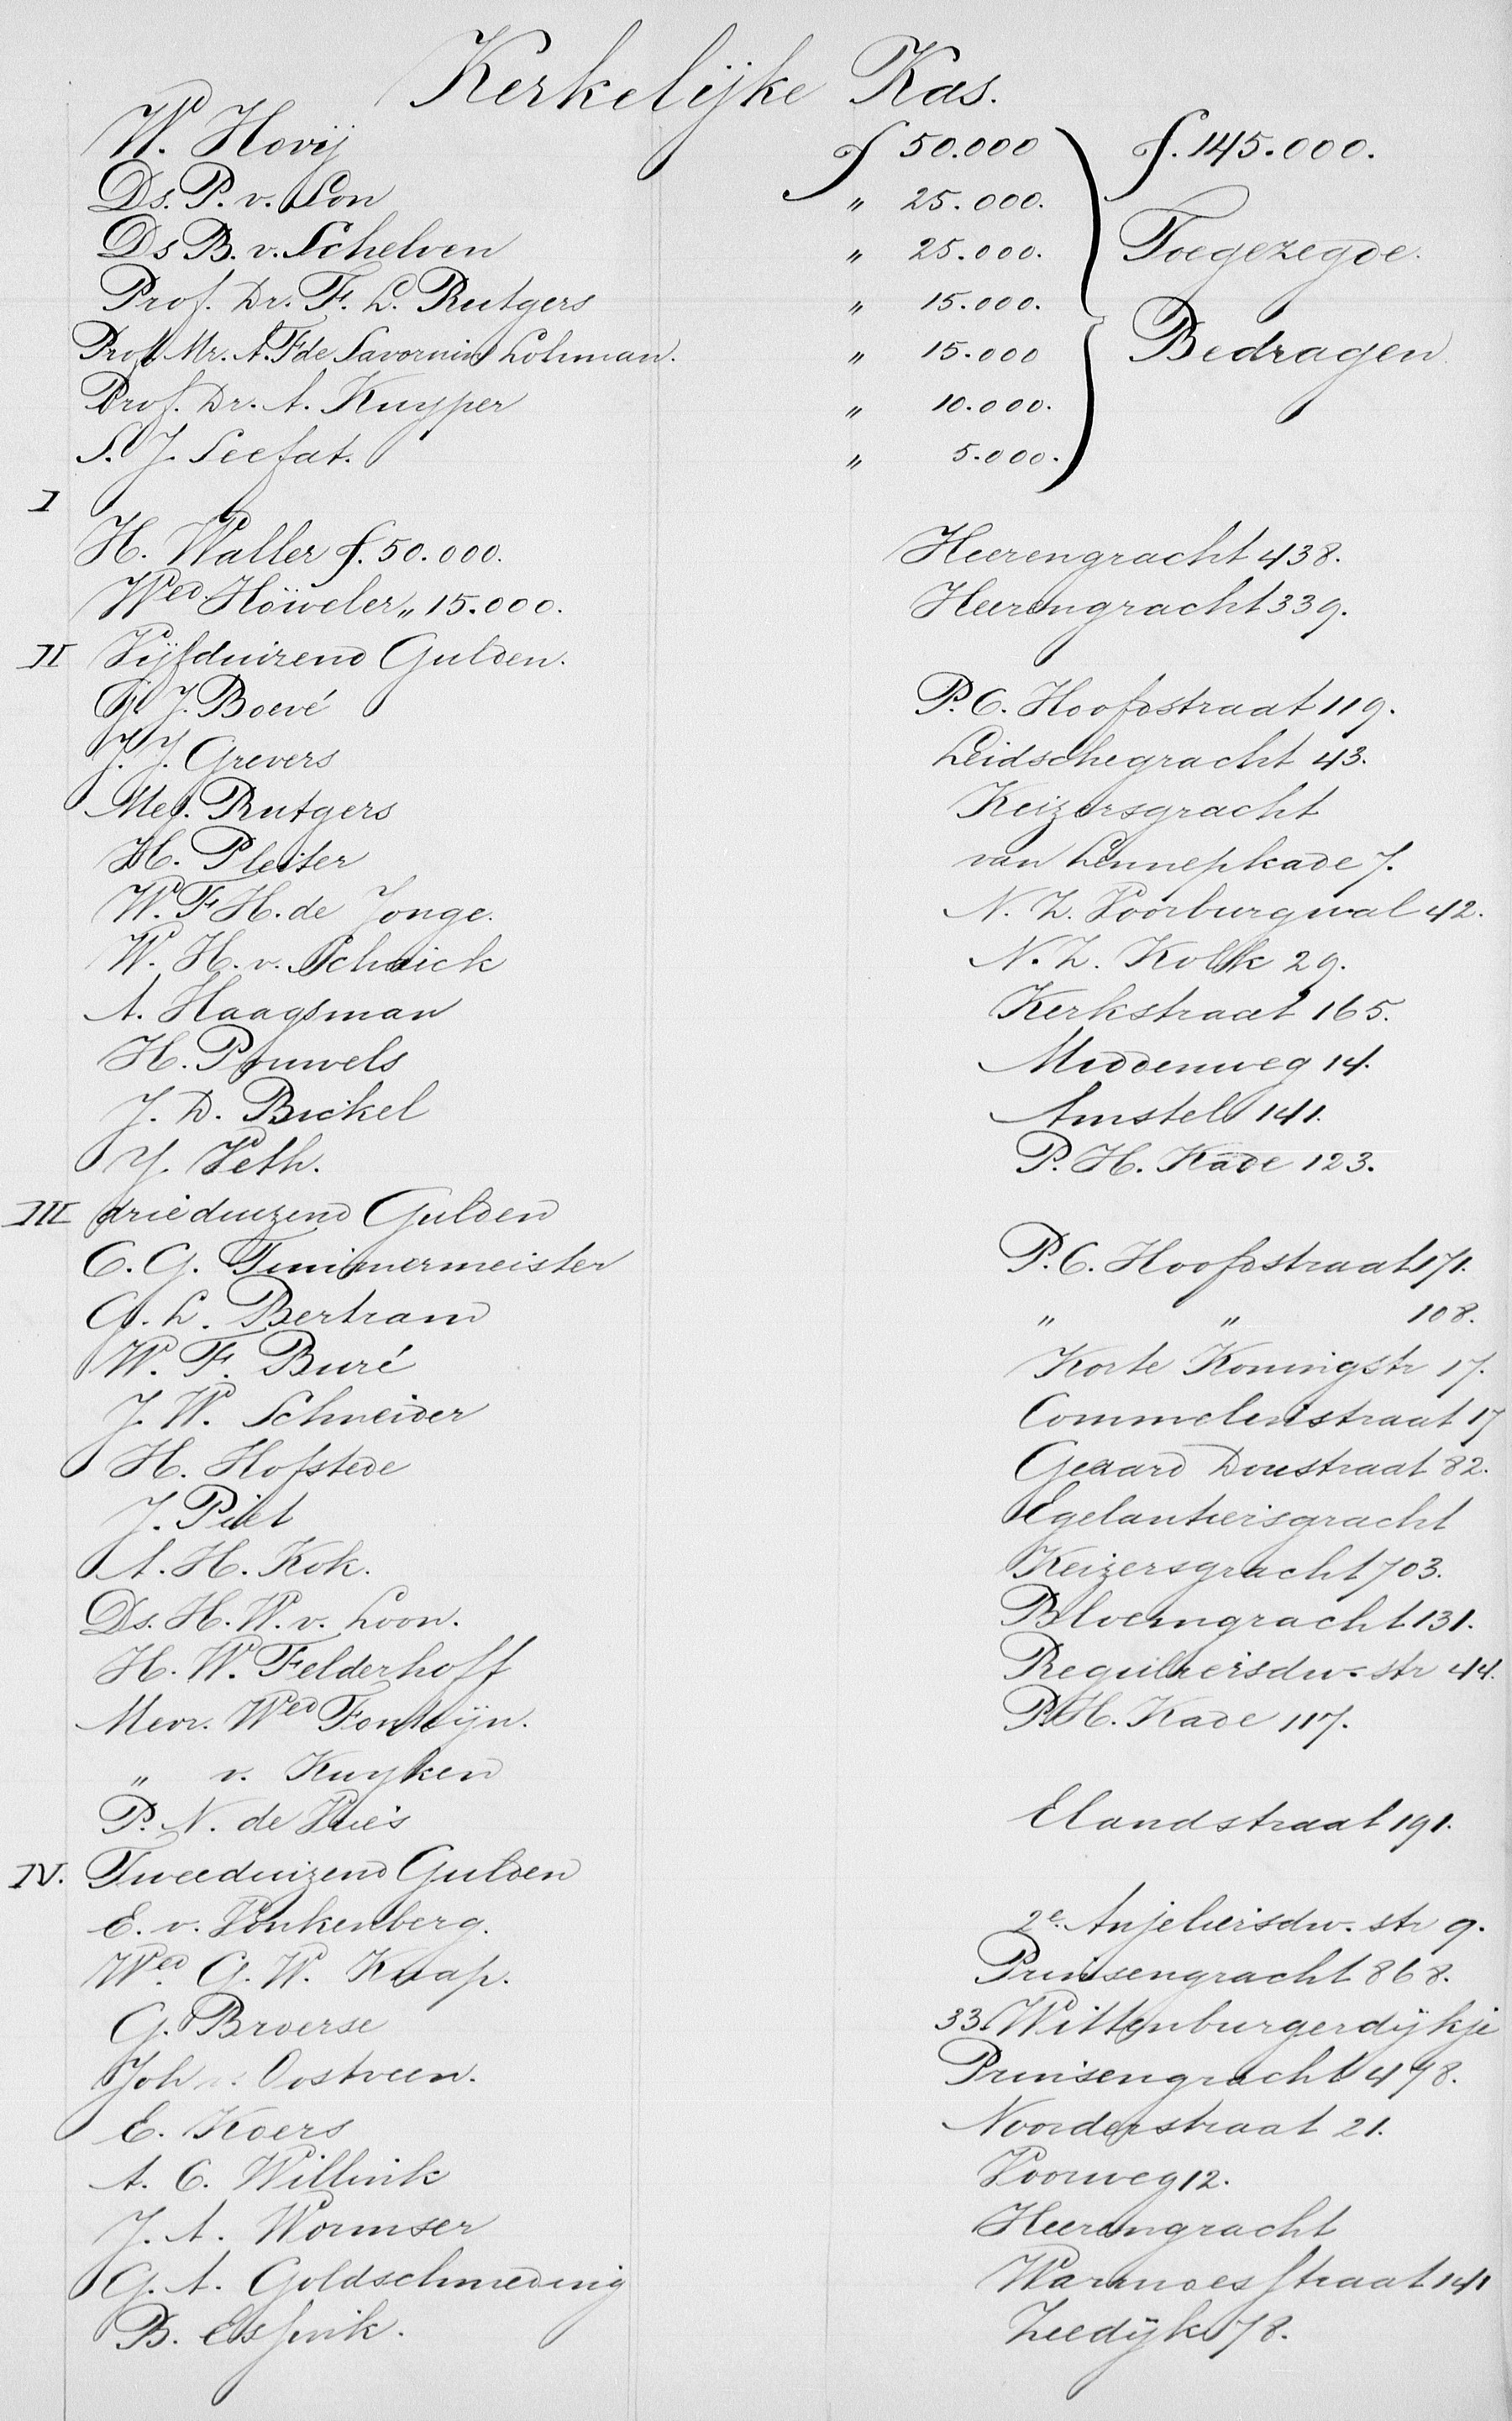 Kerkelijke Kas.
W. Hovij f 50.000 f. 145.000.
Ds. P. v. Son " 25.000.
Ds B. v. Schelven " 25.000. Toegezegde.
Prof. Dr. F. L. Rutgers " 15.000.
Prof. Mr. A. F de Savornin Lohman. " 15.000 Bedragen
Prof. Dr. A. Kuyper " 10.000.
S. J. Seefat. " 5.000.
I
H. Waller f. 50.000. Heerengracht 438.
Wed. Höweler " 15.000. Heerengracht 339.
II Vijfduizend Gulden.
G. J. Boevé P. C. Hoofdstraat 119.
J. J. Grevers Leidschegracht 43.
Mej. Rutgers Keizersgracht
H. Pleiter van Lennepkade 7.
W. F H. de Jonge. N. Z. Voorburgwal 42.
W. H. v. Schaick N. Z. Kolk 29.
A. Haagsman Kerkstraat 165.
H. Pouwels Middenweg 14.
J. D. Bickel Amstel 141.
Y. Veth. P. H. Kade 123.
III drieduizend Gulden
C. G. Timmermeister P. C. Hoofdstraat 171.
G. L. Bertram " " 108.
W. F. Buré Korte Koningstr 17.
J. W. Schneider Commelenstraat 17
H. Hofstede Geaard Doustraat 82.
J. Piet Egelantiersgracht
A. H. Kok. Keizersgracht 703.
Ds. H. W. v. Loon. Bloemgracht 131.
H. W. Felderhoff Reguliersdw. str 44.
Mevr. Wed Fonteijn. P. H. Kade 117.
" v. Kuyken
P. N. de Vries Elandstraat 191.
IV. Tweeduizend Gulden
E. v. Vonkenberg. 2e. Anjeliersdw. str 9.
Wed. G. W. Knap. Prinsengracht 868.
G. Broerse 33. Wittenburgerdijkje
Joh v. Oostveen. Prinsengracht 478.
E. Koers Noorderstraat 21.
A. C. Willink Voorweg 12.
J. A. Wormser Heerengracht
G. A. Goldschmeding Warmoesstraat 141
B. Essink. Zeedijk 78.